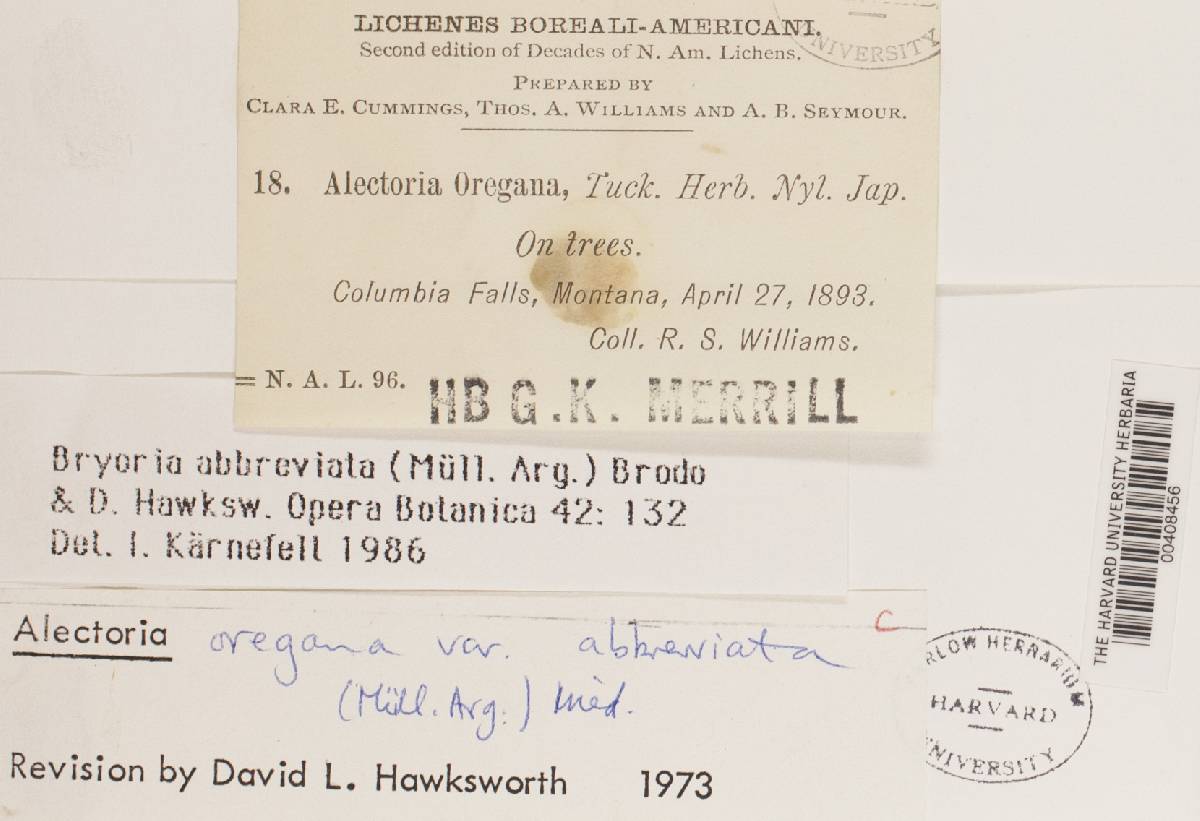 LICHENES BOREALI-AMERICANI.
Second edition of Decades of N. Am. Lichens.
PREPARED BY
CLARA E. CUMMINGS, THOS. A. WILLIAMS AND A. B. SEYMOUR.
NIVERSITY
18. Alectoria Oregana, Tuck. Herb. Nyl. Jap.
On trees.
Columbia Falls, Montana, April 27, 1893.
Coll. R. S. Williams.
= N. A. L. 96.
HB G.K. MERRILL
Bryoria abbreviata (Müll. Arg.) Brodo
& D. Hawksw. Opera Botanica 42: 132
Det. I. Kärnefelt 1986
Alectoria oregana var. abbreviata
(Müll. Arg.)
C
Revision by David L. Hawksworth 1973
RLOW HERBARIUM
HARVARD
UNIVERSITY
THE HARVARD UNIVERSITY HERBARIA
00408456